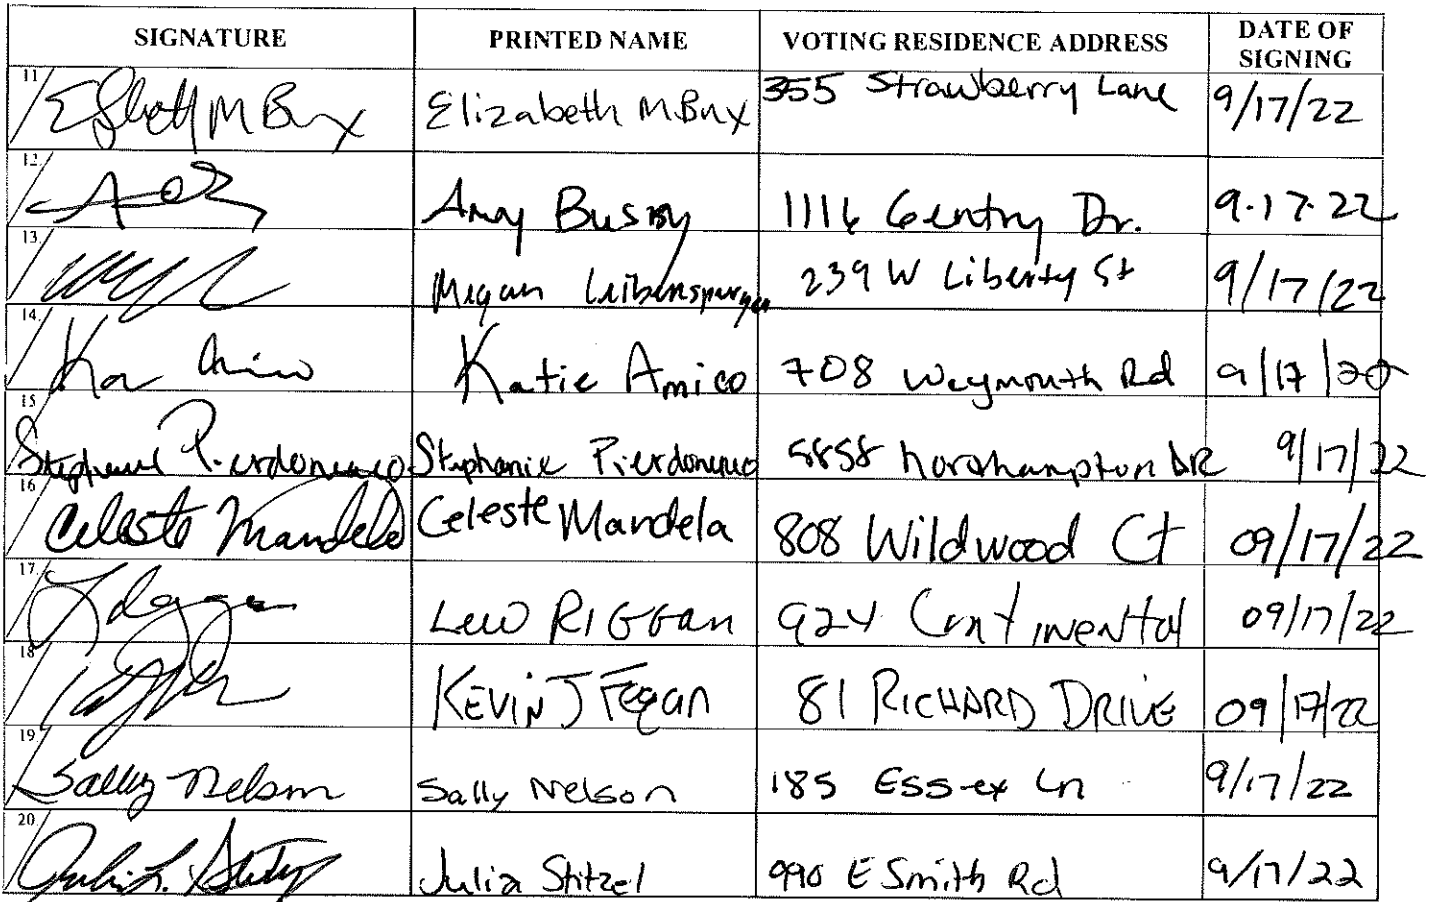 SIGNATURE PRINTED NAME VOTING RESIDENCE ADDRESS DATE OF SIGNING
11. Elizabeth M Bux 355 Strawberry Lane 9/17/22
12. Amy Busby 1116 Gentry Dr. 9.17.22
13. Megan Leibensperger 239 W Liberty St 9/17/22
14. Katie Amico 708 Weymouth Rd 9/17/20
15 Stephanie Pierdomenico Stephanie Pierdomenico 5858 Northampton DR 9/17/22
16 Celeste Mandela Celeste Mandela 808 Wildwood Ct 09/17/22
17. Lew RIGGan 924 Continental 09/17/22
18 KEVIN J Fegan 81 RICHARD DRIVE 09/17/22
19 Sally Nelson Sally Nelson 185 Essex Ln 9/17/22
20 Julia Stitzel 990 E Smith Rd 9/17/22